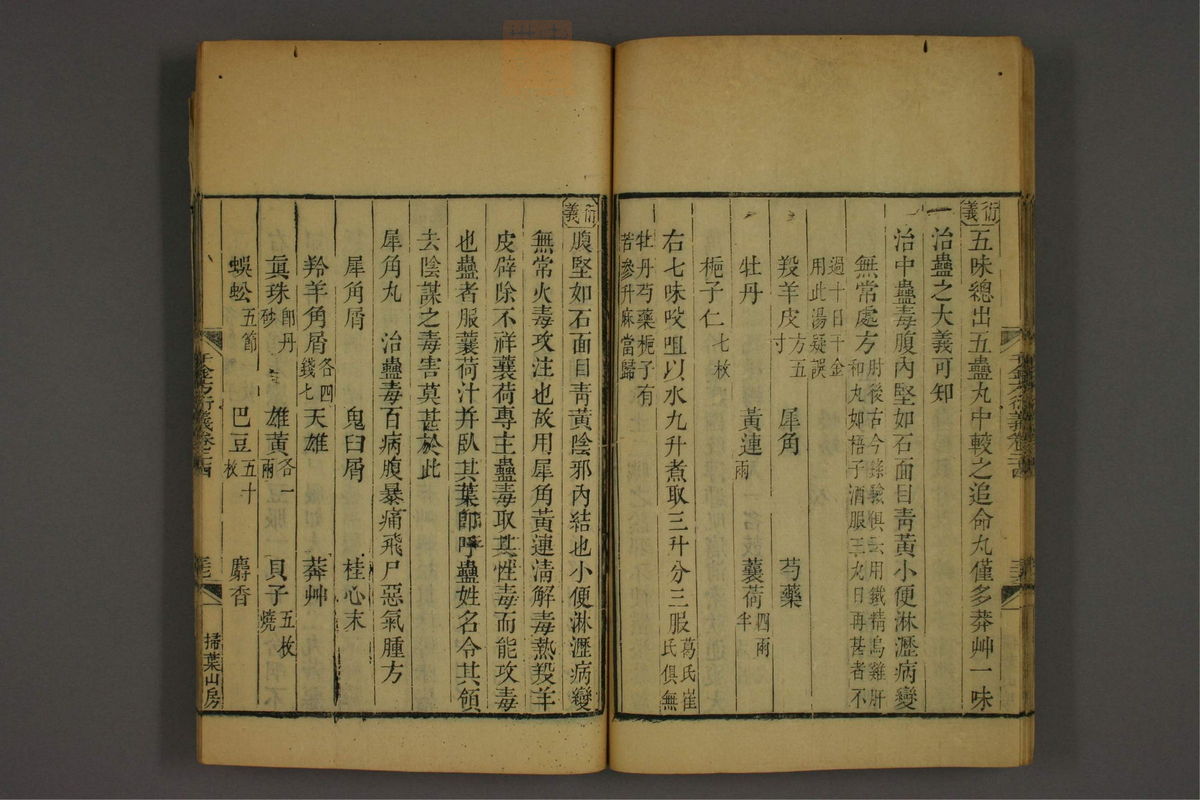 衍義五味總出五蠱丸中較之追命丸僅多莽艸一味
治蠱之大義可知
治中蠱毒腹內堅如石面目青黃小便淋瀝病變
無常處方肘後古今錄驗俱云用鐵精烏雞肝
和丸如梧子酒服三丸日再甚者不
過十日十金
用此湯疑誤
羖羊皮方五寸 犀角 芍藥
牡丹 黃連兩 蘘荷四兩半
梔子仁七枚
右七味㕮咀以水九升煮取三升分三服葛氏崔
氏俱無
牡丹芍藥梔子有
苦參升麻當歸
衍義腹堅如石面目青黃陰邪內結也小便淋瀝病變
無常火毒攻注也故用犀角黃連清解毒熱羖羊
皮辟除不祥蘘荷專主蠱毒取其性毒而能攻毒
也蠱者服蘘荷汁并臥其葉即呼蠱姓名令其領
去陰謀之毒害莫甚於此
犀角丸 治蠱毒百病腹暴痛飛尸惡氣腫方
犀角屑 鬼臼屑 桂心末
羚羊角屑各四錢七 天雄 莽艸
真珠即丹砂 雄黃各一兩 貝子五枚燒
蜈蚣五節 巴豆五十枚 麝香
掃葉山房